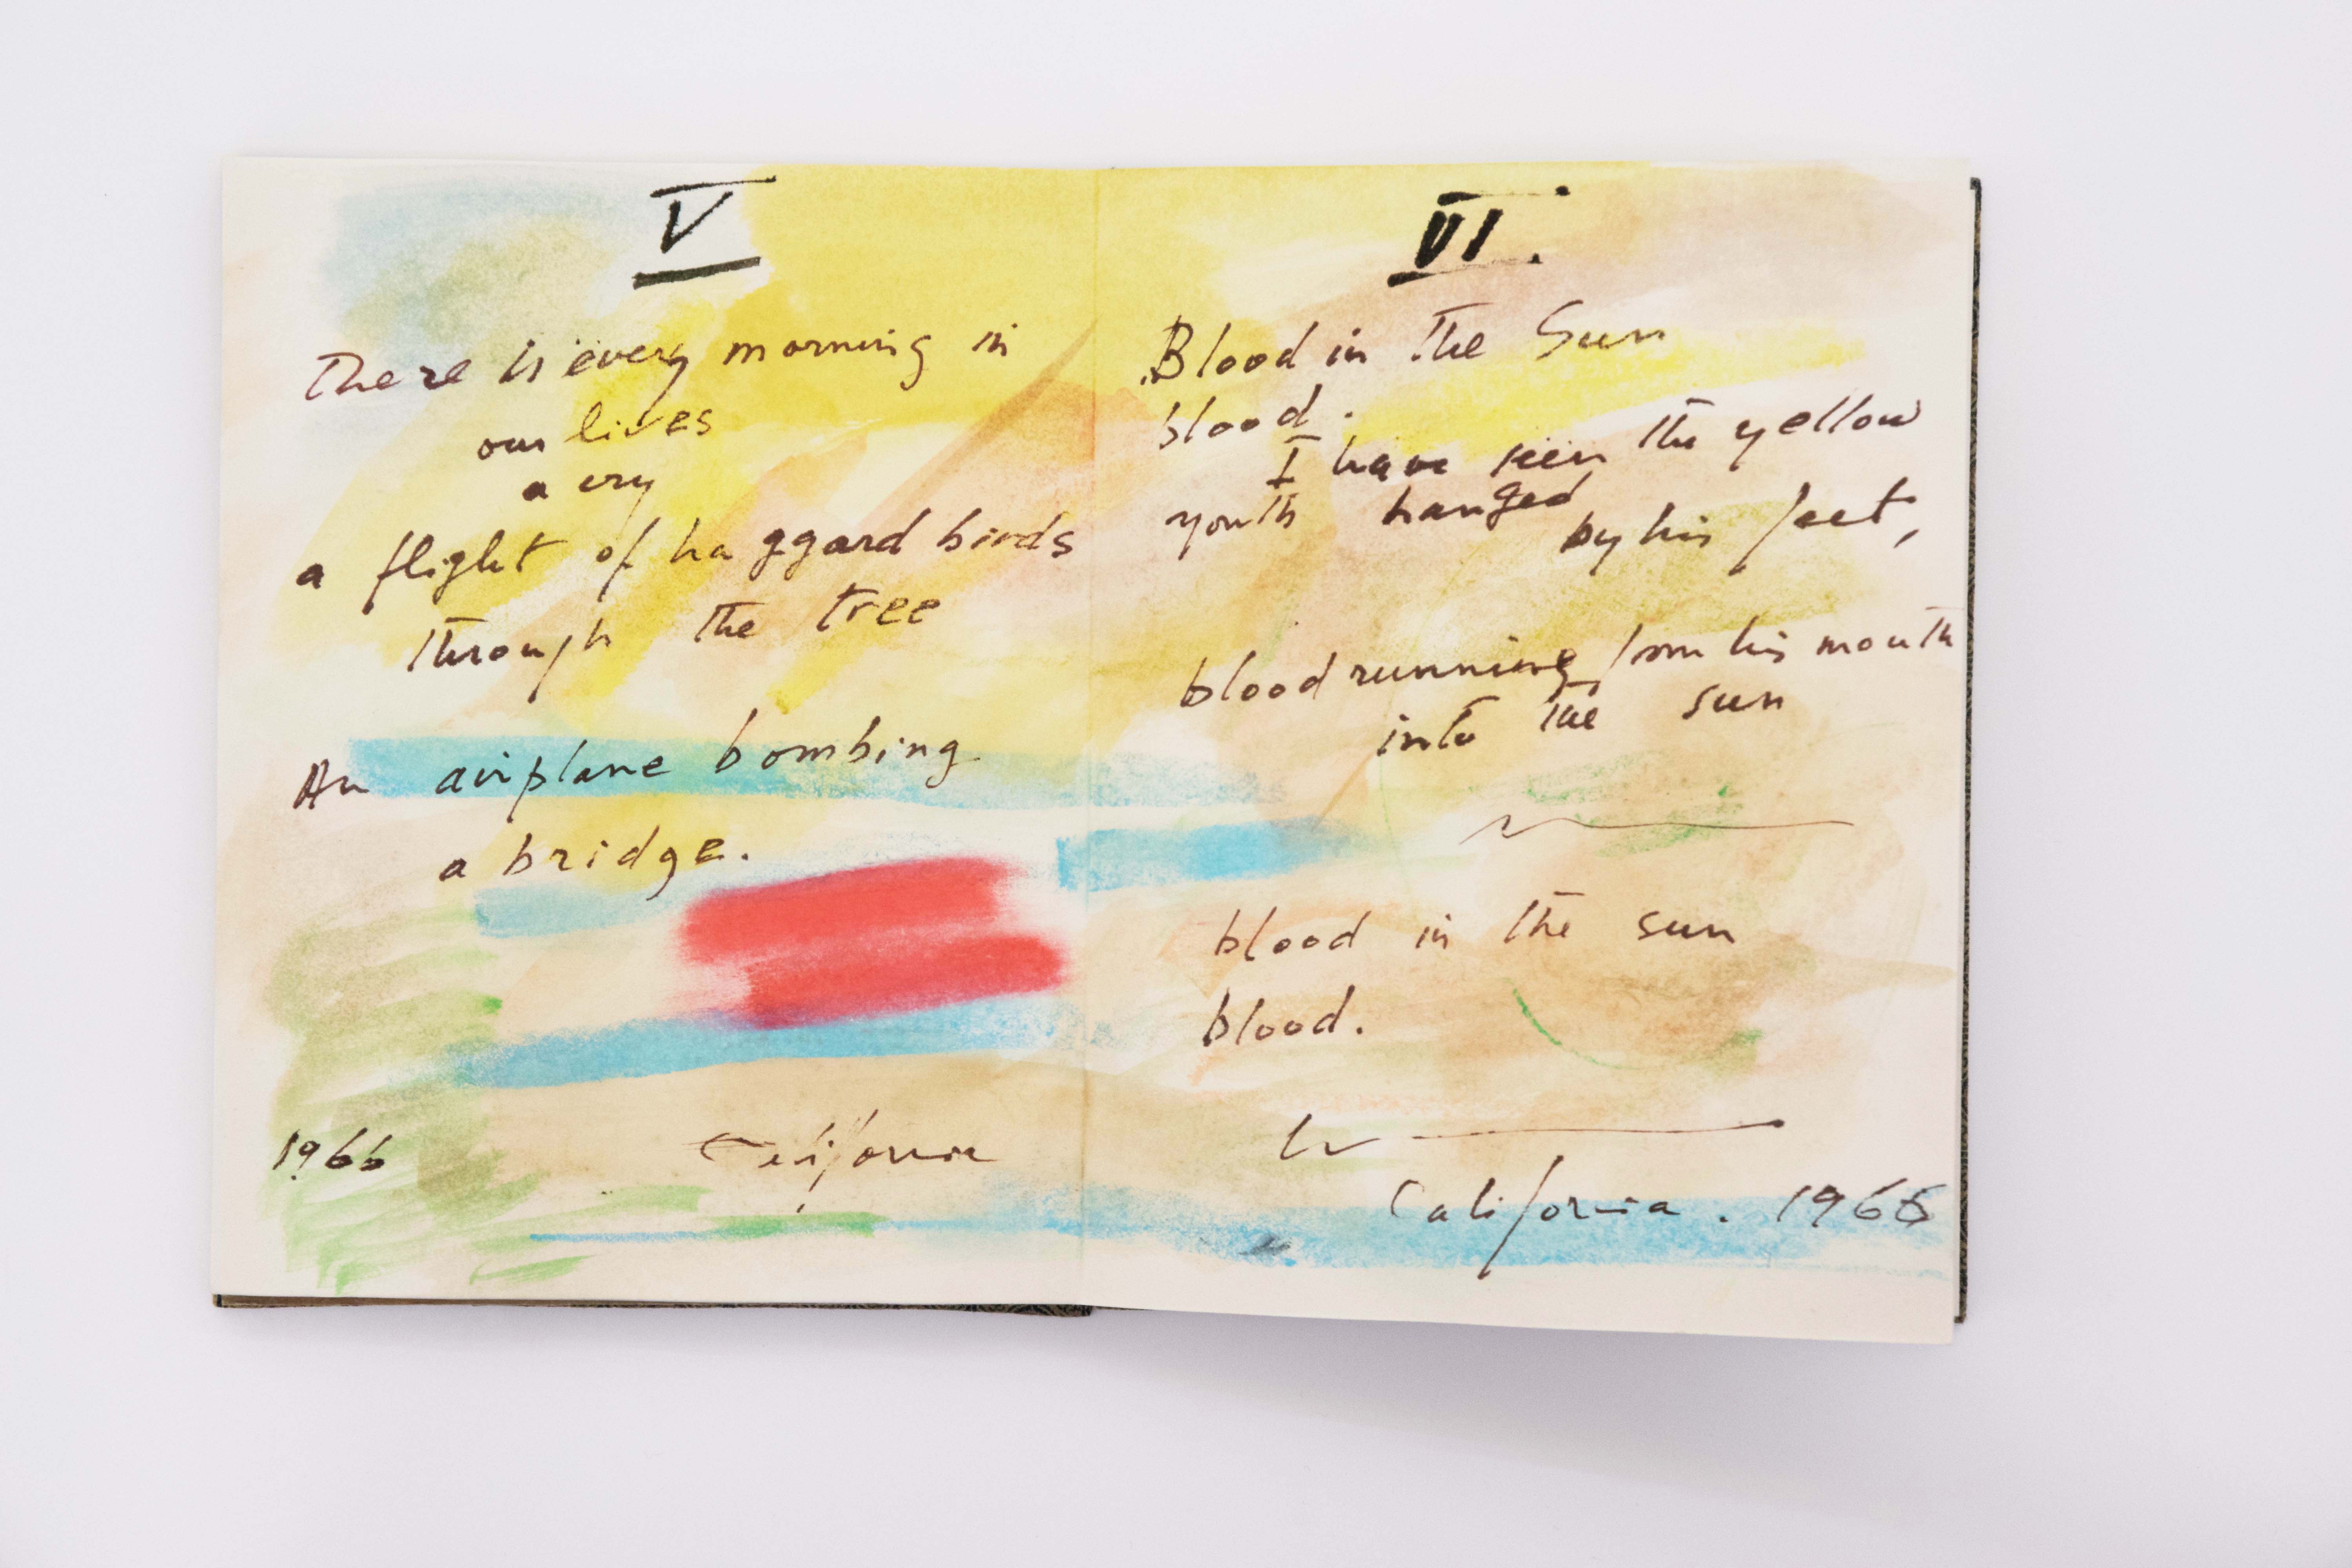 V
There is every morning in
our lives
a cry
a flight of haggard birds
through the tree
An airplane bombing
a bridge.
1966 California
VI.
Blood in the Sun
blood.
I have seen the yellow
youth hanged
by his feet,
blood running from his mouth
into the sun
blood in the sun
blood.
California. 1966